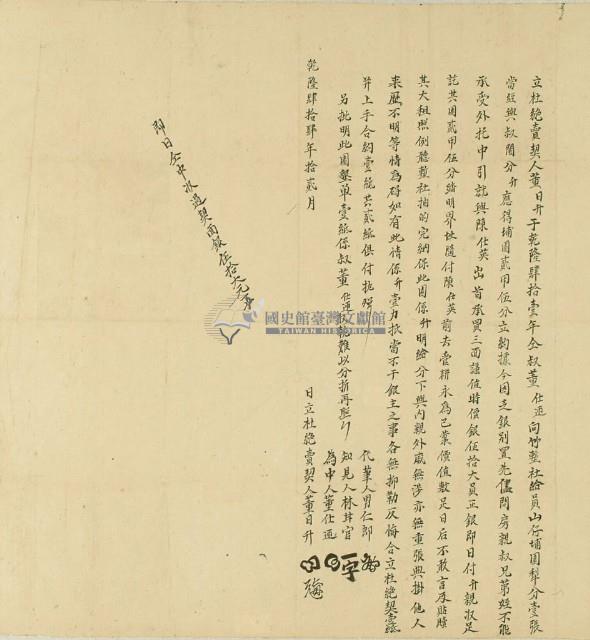 立杜絕賣契人董日升于乾隆肆拾壹年仝叔董仕迊向竹塹社給員山仔埔園犁分壹張
當經與叔鬮分升應得埔園貳甲伍分立約據今因乏銀別置先儘問房親叔兄弟姪不能
承受外托中引就與陳仕英出首承買三面議值時價銀伍拾大員正銀即日付升親收足
訖其園貳甲伍分踏明界址隨付陳仕英前去管耕永為己業價值數足日后不敢言及貼贖
其大租照例聽塹社指的完納保此園係升明給分下與內親外戚無涉亦無重張典掛他人
來歷不明等情為碍如有此情係升壹力抵當不干銀主之事各無抑勒反悔合立杜絕契壹紙
并上手合約壹紙共貳紙俱付執炤
另批明此園墾單壹紙係叔董仕迊收執難以分折再炤
乾隆肆拾肆年拾貳月
日立杜絕賣契人董日升
代筆人男仁郎
知見人林官
為中人董仕迊
即日仝中收過契面銀伍拾大元
國史館臺灣文獻館
TAIWAN HISTORICA